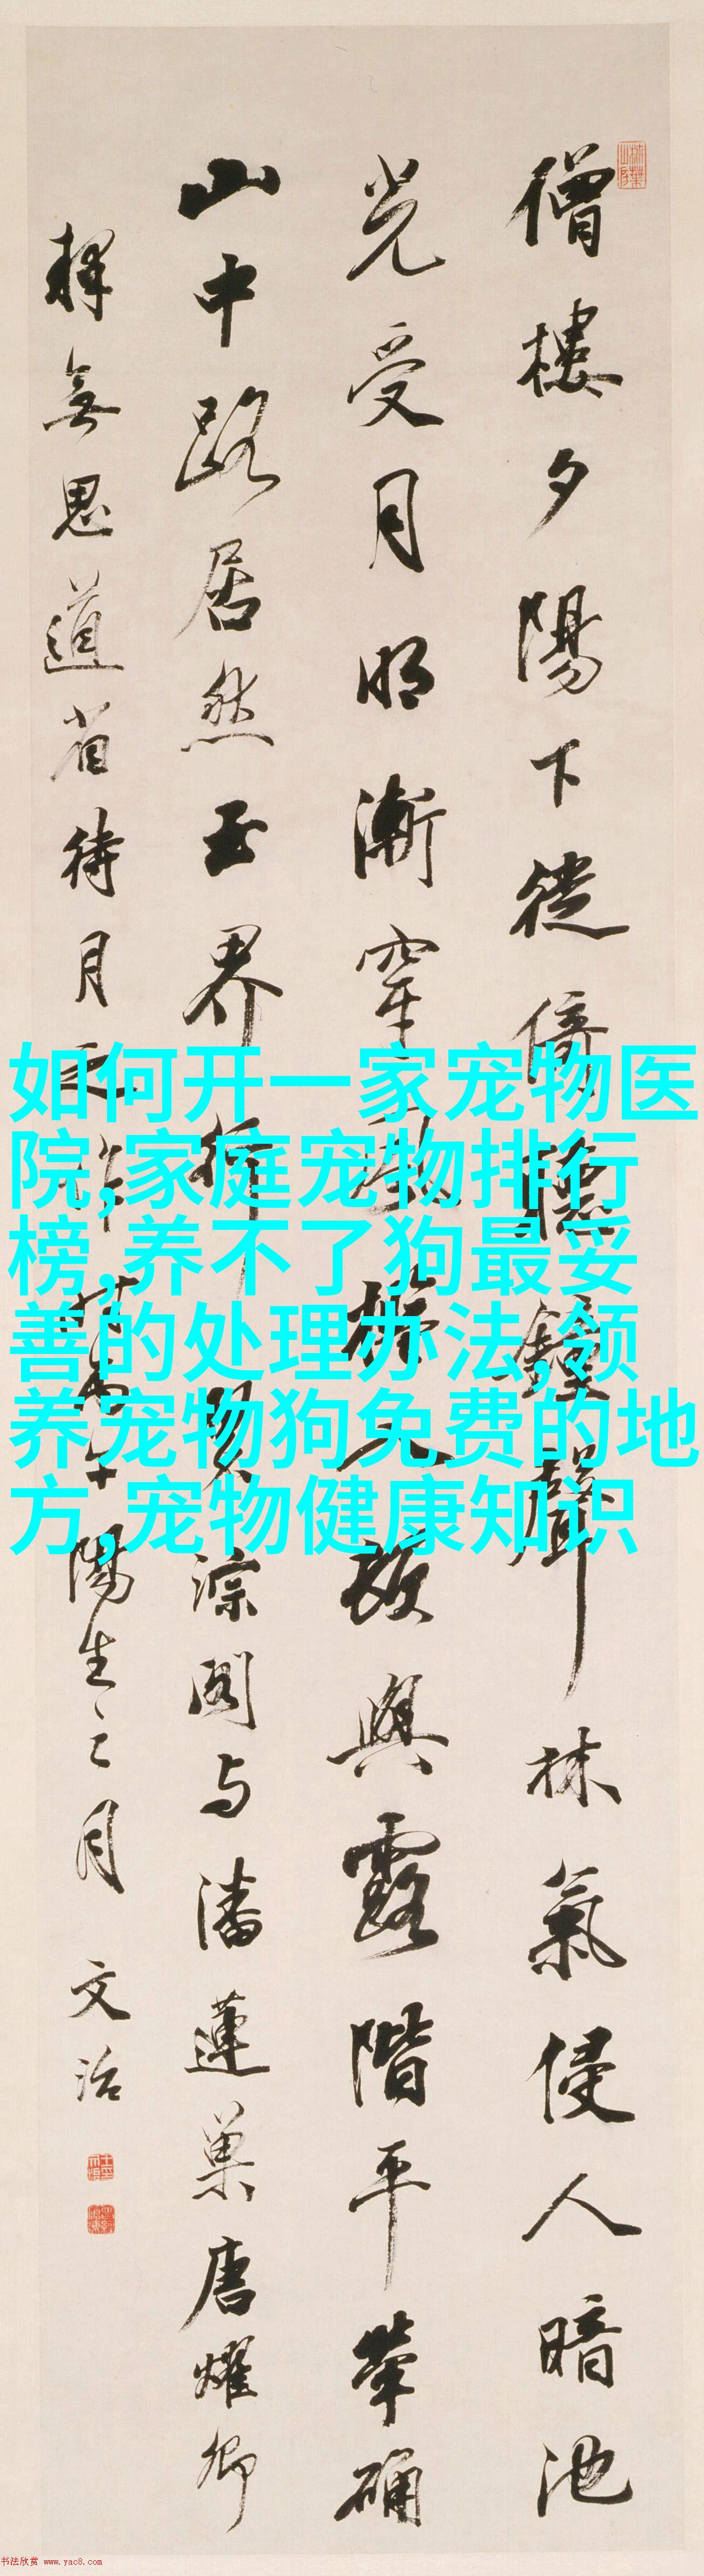 僧樓夕陽下徙倚聽鐘聲林氣侵人暗池
光受月明漸穿
人
與露階平華
山中路居然玉界
淙閣与潘蓮巢唐耀卿
禪無思道省待月之作
陽生之月 文治
如何开一家宠物医
院,家庭宠物排行
榜,养不了狗最妥
善的处理办法,领
养宠物狗免费的地
方,宠物健康知识
书法欣赏 www.yac8.com